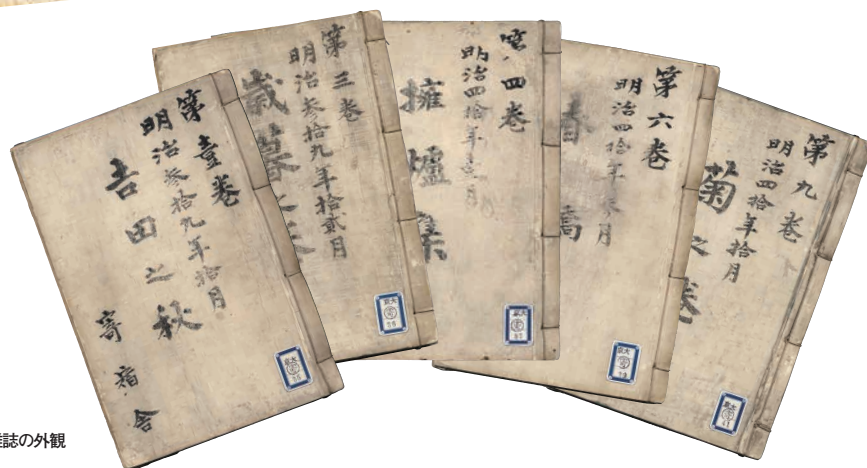 第壹巻
明治参拾九年拾月
吉田之秋
寄宿舎
第三巻
明治参拾九年拾貮月
歳暮之巻
四巻
明治四拾年壹月
擁爐集
第六巻
明治四拾年参月
春
第九巻
明治四拾年拾月
菊之巻
誌の外観